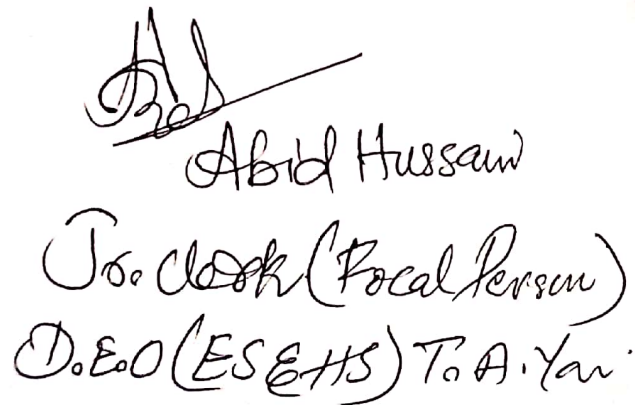 Abid Hussain
Jr. Clerk (Focal Person)
D.E.O (ES&HS) T.A.Yar.